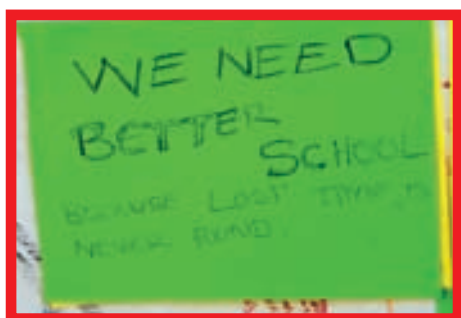 WE NEED
BETTER
SCHOOL
BECAUSE LOST TIME IS
NEVER FOUND